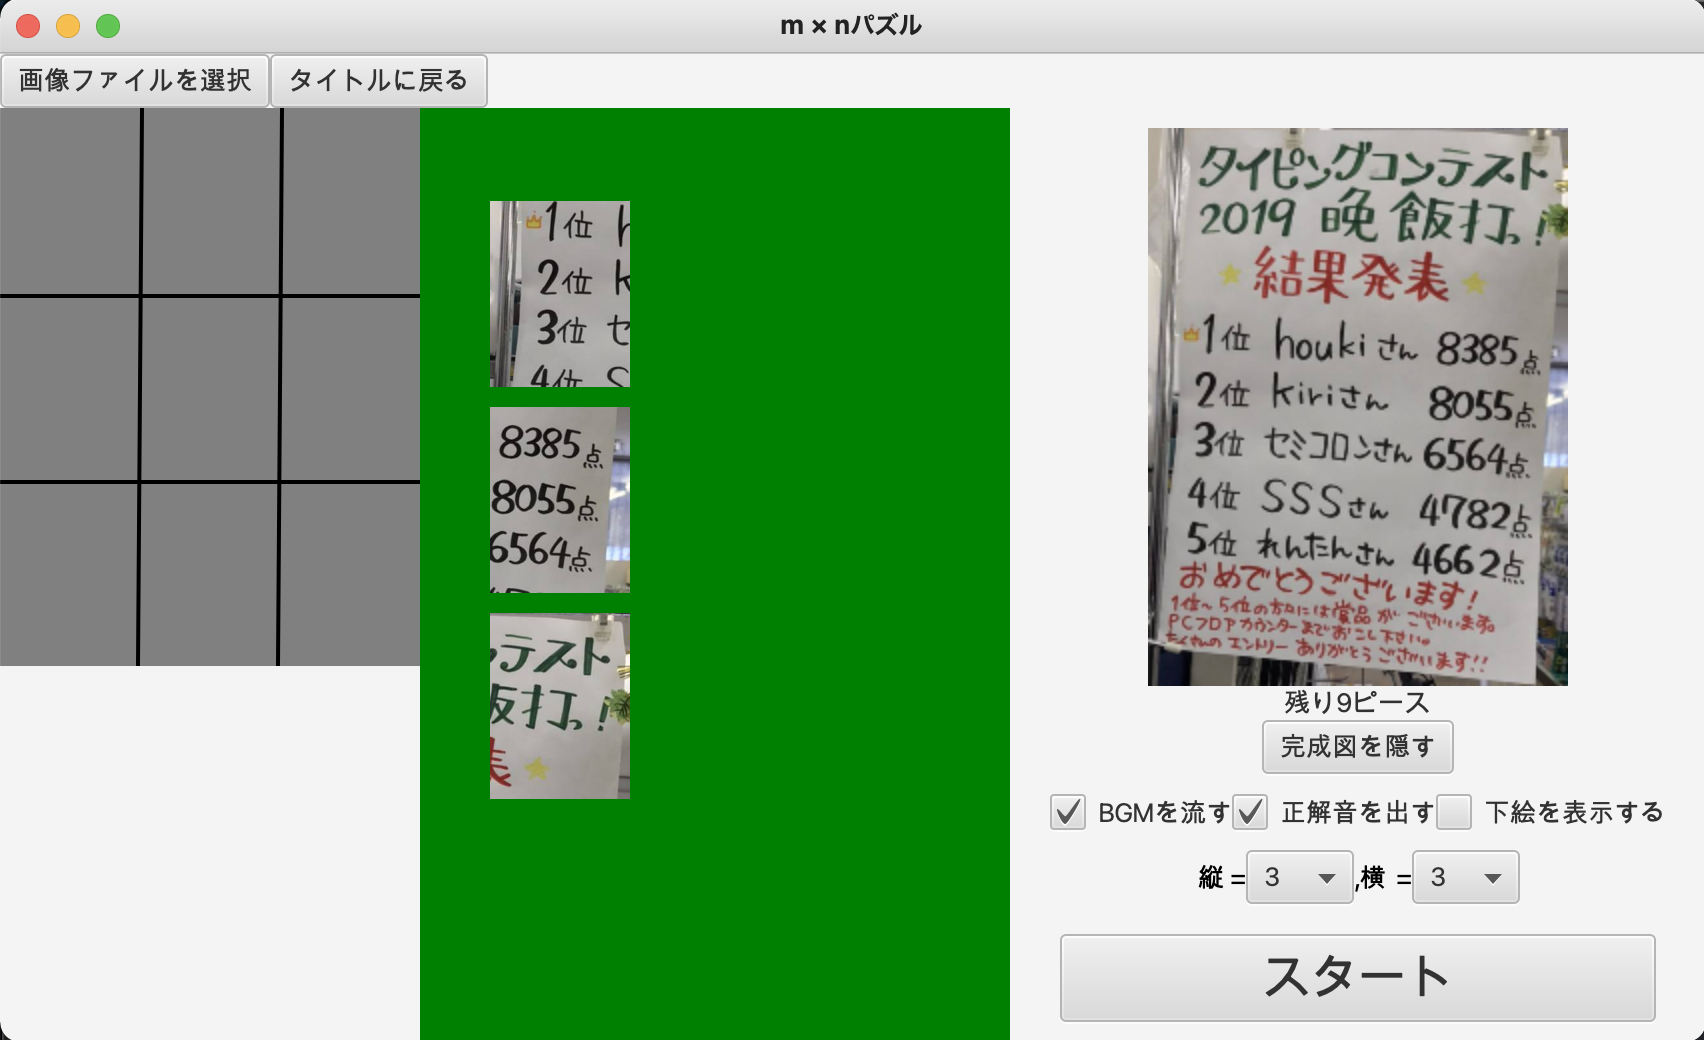 m × nパズル
画像ファイルを選択
タイトルに戻る
1位 h
2位 k
3位 セ
4位 S
8385点
8055点
6564点
ンテスト
飯打っ!
表
タイピングコンテスト
2019 晩飯打っ!
結果発表
1位 houkiさん 8385点
2位 kiriさん 8055点
3位 セミコロンさん 6564点
4位 SSSさん 4782点
5位 れんたんさん 4662点
おめでとうございます!
1位〜5位の方々には賞品がございます。
PCフロアカウンターまでおこし下さい。
たくさんのエントリーありがとうございます!!
残り9ピース
完成図を隠す
BGMを流す
正解音を出す
下絵を表示する
縦 =
3
,横 =
3
スタート